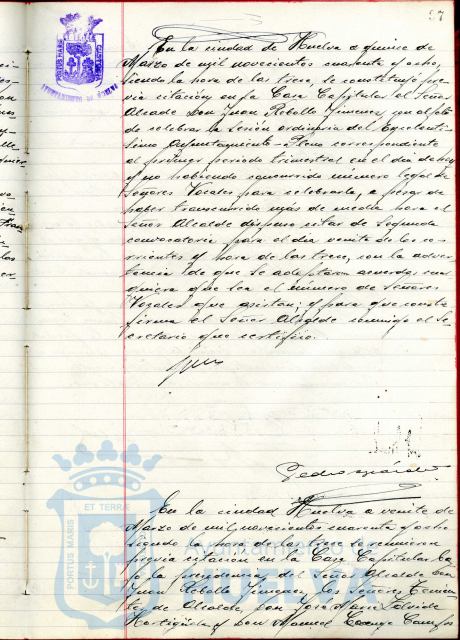 97
PORTUS MARIS
AYUNTAMIENTO DE HUELVA
En la ciudad de Huelva a quince de
Marzo de mil novecientos cuarenta y ocho,
siendo la hora de las trece, se constituyó pre-
via citación en la Casa Capitular el Señor
Alcalde Don Juan Rebollo Jimenez con objeto
de celebrar la Sesión ordinaria del Excelentí-
simo Ayuntamiento-Pleno correspondiente
al primer período trimestral en el día de hoy
y no habiendo concurrido número legal de
Señores Vocales para celebrarla, a pesar de
haber transcurrido más de media hora el
Señor Alcalde dispuso citar de Segunda
convocatoria para el día veinte de los co-
rrientes y hora de las trece, con la adver-
tencia de que se adoptaran acuerdos cual
quiera que sea el número de Señores
Vocales que asistan; y para que conste
firma el Señor Alcalde conmigo el Se-
cretario que certifico.
En la ciudad Huelva a veinte de
Marzo de mil novecientos cuarenta y ocho
siendo la hora de las trece se reunieron
previa citación en la Casa Capitular ba-
jo la presidencia del Señor Alcalde Don
Juan Rebollo Jimenez, los Señores Tenien-
tes de Alcalde, Don José María
y Don Manuel
ET TERRÆ
PORTUS MARIS
Ayuntamiento de
HUELVA